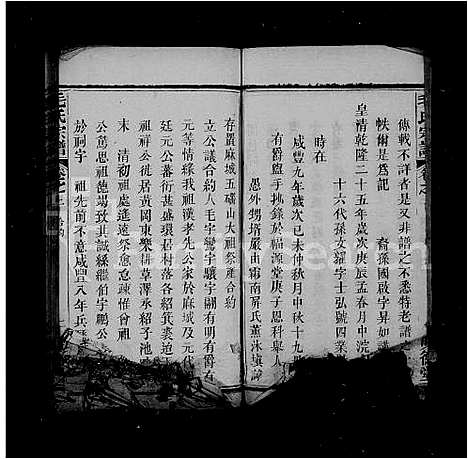 傳載不詳者是又非譜之不悉特老譜
帙爾是爲記　裔孫國啟字昇如謹
皇清乾隆二十五年歲次庚辰孟春月中浣
十六代孫文耀字士弘號四業
時在
咸豐九年歲次己未仲秋月中秋十九
有爵監手抄錄於福源堂庚子恩科舉人
愚外甥塔嚴由霜南屏氏薰沐
存置麻城五磯山大祖祭產合約
立公議合約人毛宇鸞宇驤宇翩有明有爵有
元等情緣我祖漢孝先公家於麻城及元代
廷元公蕃衍甚盛環居村落各紹箕裘迨
祖祥公徙居黃岡東樂耕草澤承紹子池
末　清初祖處遙遠祭愈疏慊惟曾祖
公篤思祖德竭致其誠絲繼伯宇鵬公
於祠宇　祖先前不意咸豐八年兵
毛氏宗譜